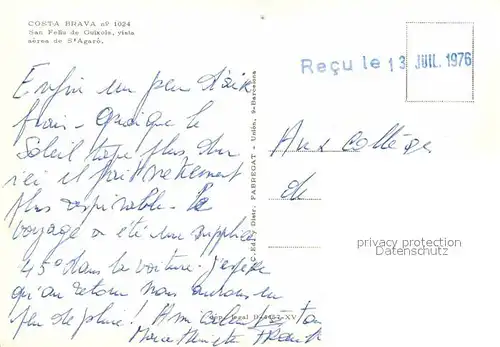 COSTA BRAVA nº 1024
San Feliu de Guixols, vista
aérea de S'Agaró.
Reçu le 13 JUIL. 1976
Enfin un peu d'air
frais - Quoique le
Soleil tape plus dur
ici il fait nettement
plus respirable - Le
voyage a été un supplice
45° dans la voiture. J'espère
qu'au retour nous aurons un
peu de pluie !
Marie
Aux Collègues
de
C. Ed. y Distr. FABREGAT - Unión, 9-Barcelona
privacy protection
Datenschutz